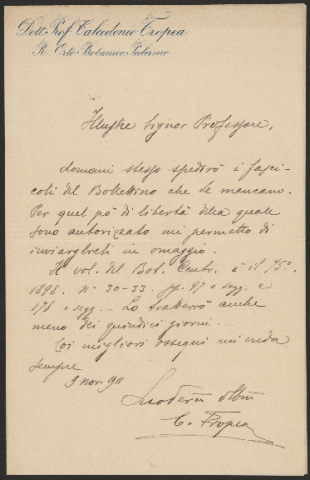 Dott. Prof. Calcedonio Tropea
R. Orto Botanico Palermo
Illustre Signor Professore,
domani stesso spedirò i fasci-
coli del Bollettino che le mancano.
Per quel pò di libertà della quale
sono autorizzato mi permetto di
inviarglieli in omaggio.
Il vol. del Bot. Centr. è il 75º
1898. Nº 30-33. pp. 97 e segg. e
178 e segg. — Lo tratterrò anche
meno dei quindici giorni.
Coi migliori ossequi mi creda
sempre
9 nov. 911
C. Tropea